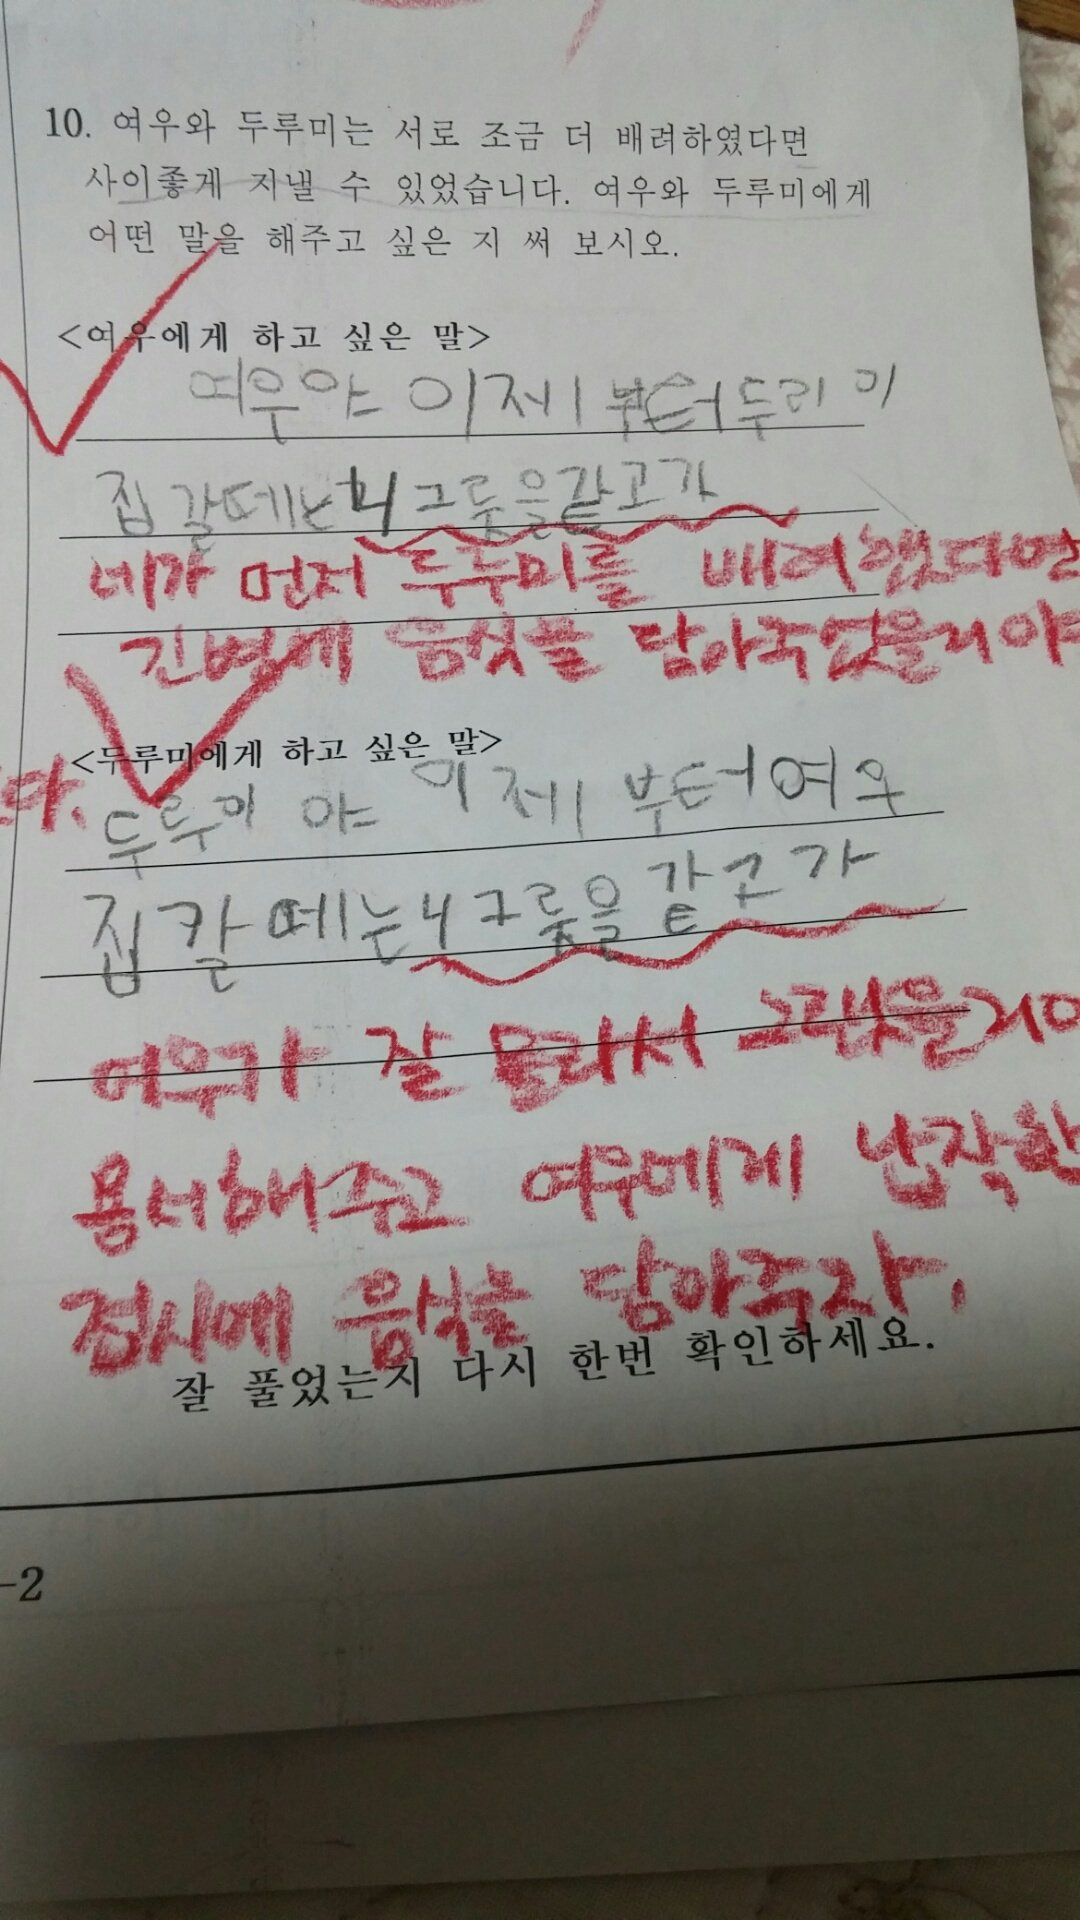 10. 여우와 두루미는 서로 조금 더 배려하였다면
사이좋게 지낼 수 있었습니다. 여우와 두루미에게
어떤 말을 해주고 싶은 지 써 보시오.
<여우에게 하고 싶은 말>
여우야 이제부터 두리미
집 갈떼는 니 그릇을 갇고가
네가 먼저 두루미를 배려했다면
긴병에 음식을 담아주었을거야
<두루미에게 하고 싶은 말>
다.
두루미야 이제부터 여우
집 갈 떼는 니 그릇을 갘고 가
여우가 잘 몰라서 그랬을거야
용서해주고 여우에게 납작한
접시에 음식을 담아주자.
잘 풀었는지 다시 한번 확인하세요.
-2